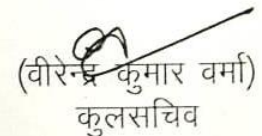 (वीरेन्द्र कुमार वर्मा)
कुलसचिव